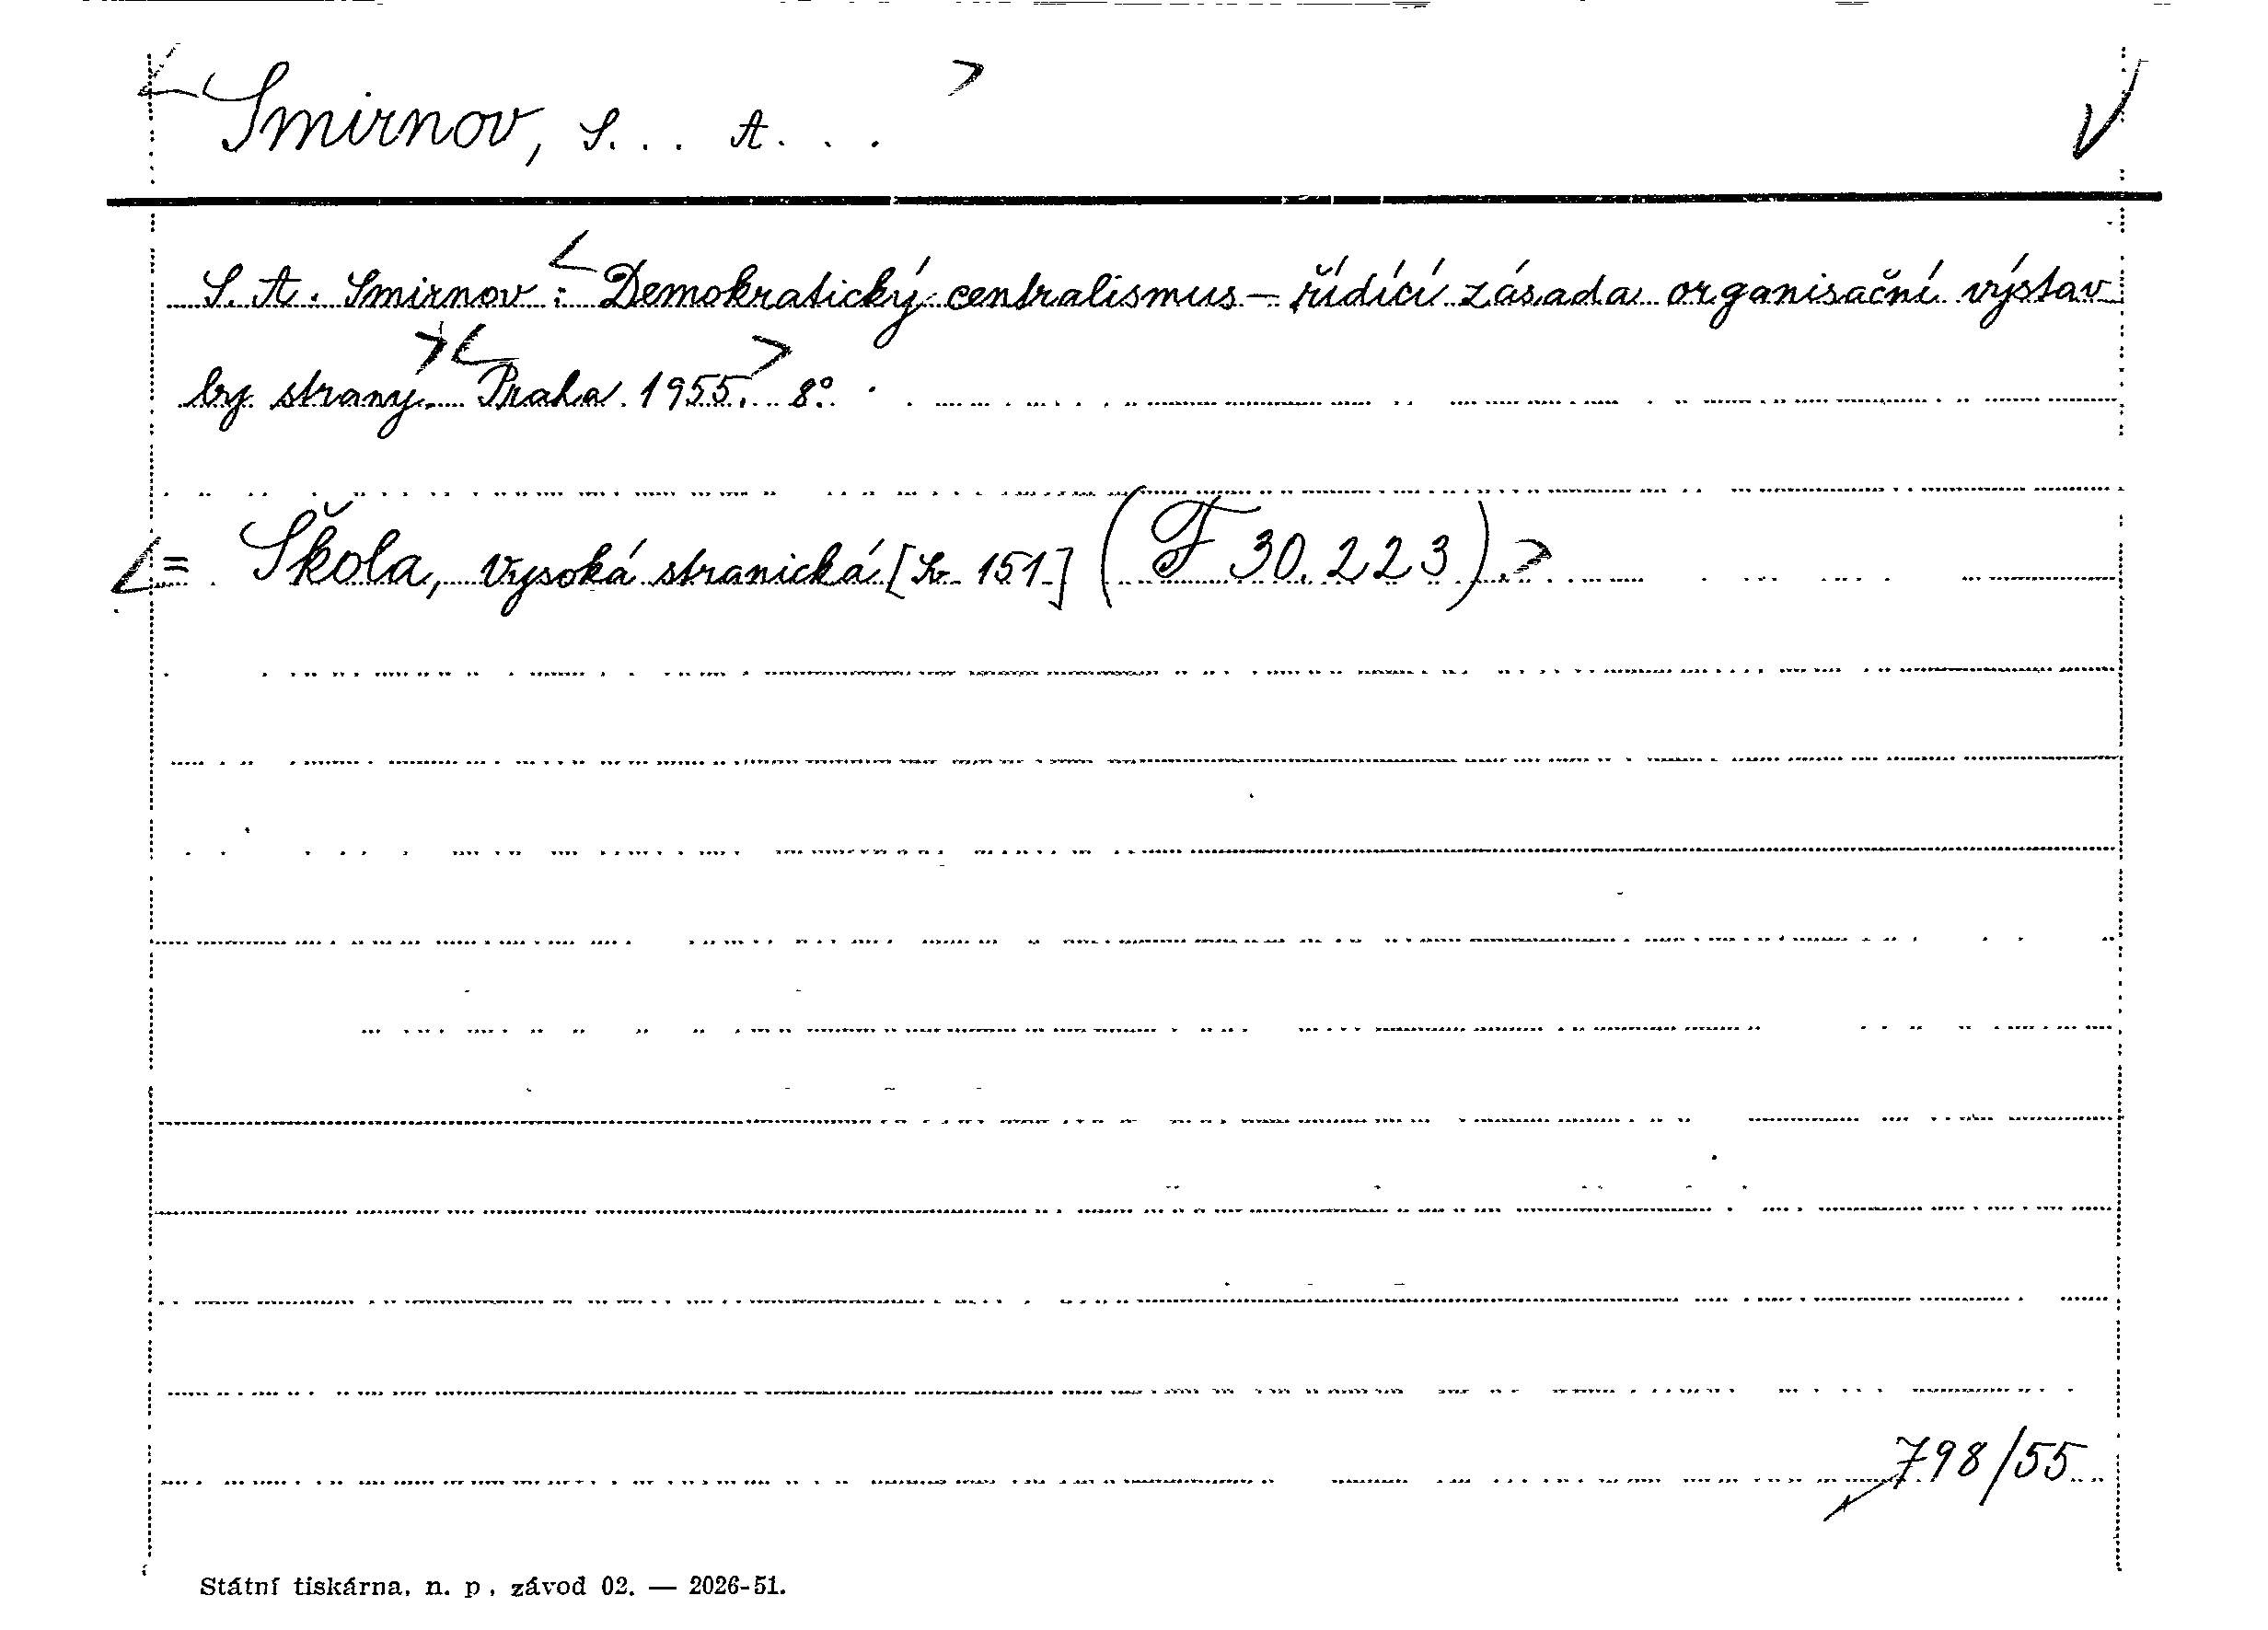 Smirnov, S... A...
S. A. Smirnov: Demokratický centralismus – řídící zásada organisační výstav
by strany. Praha 1955. 8°.
= Škola, Vysoká stranická [Sv. 151] (F 30.223).
798/55
Státní tiskárna, n. p., závod 02. — 2026-51.